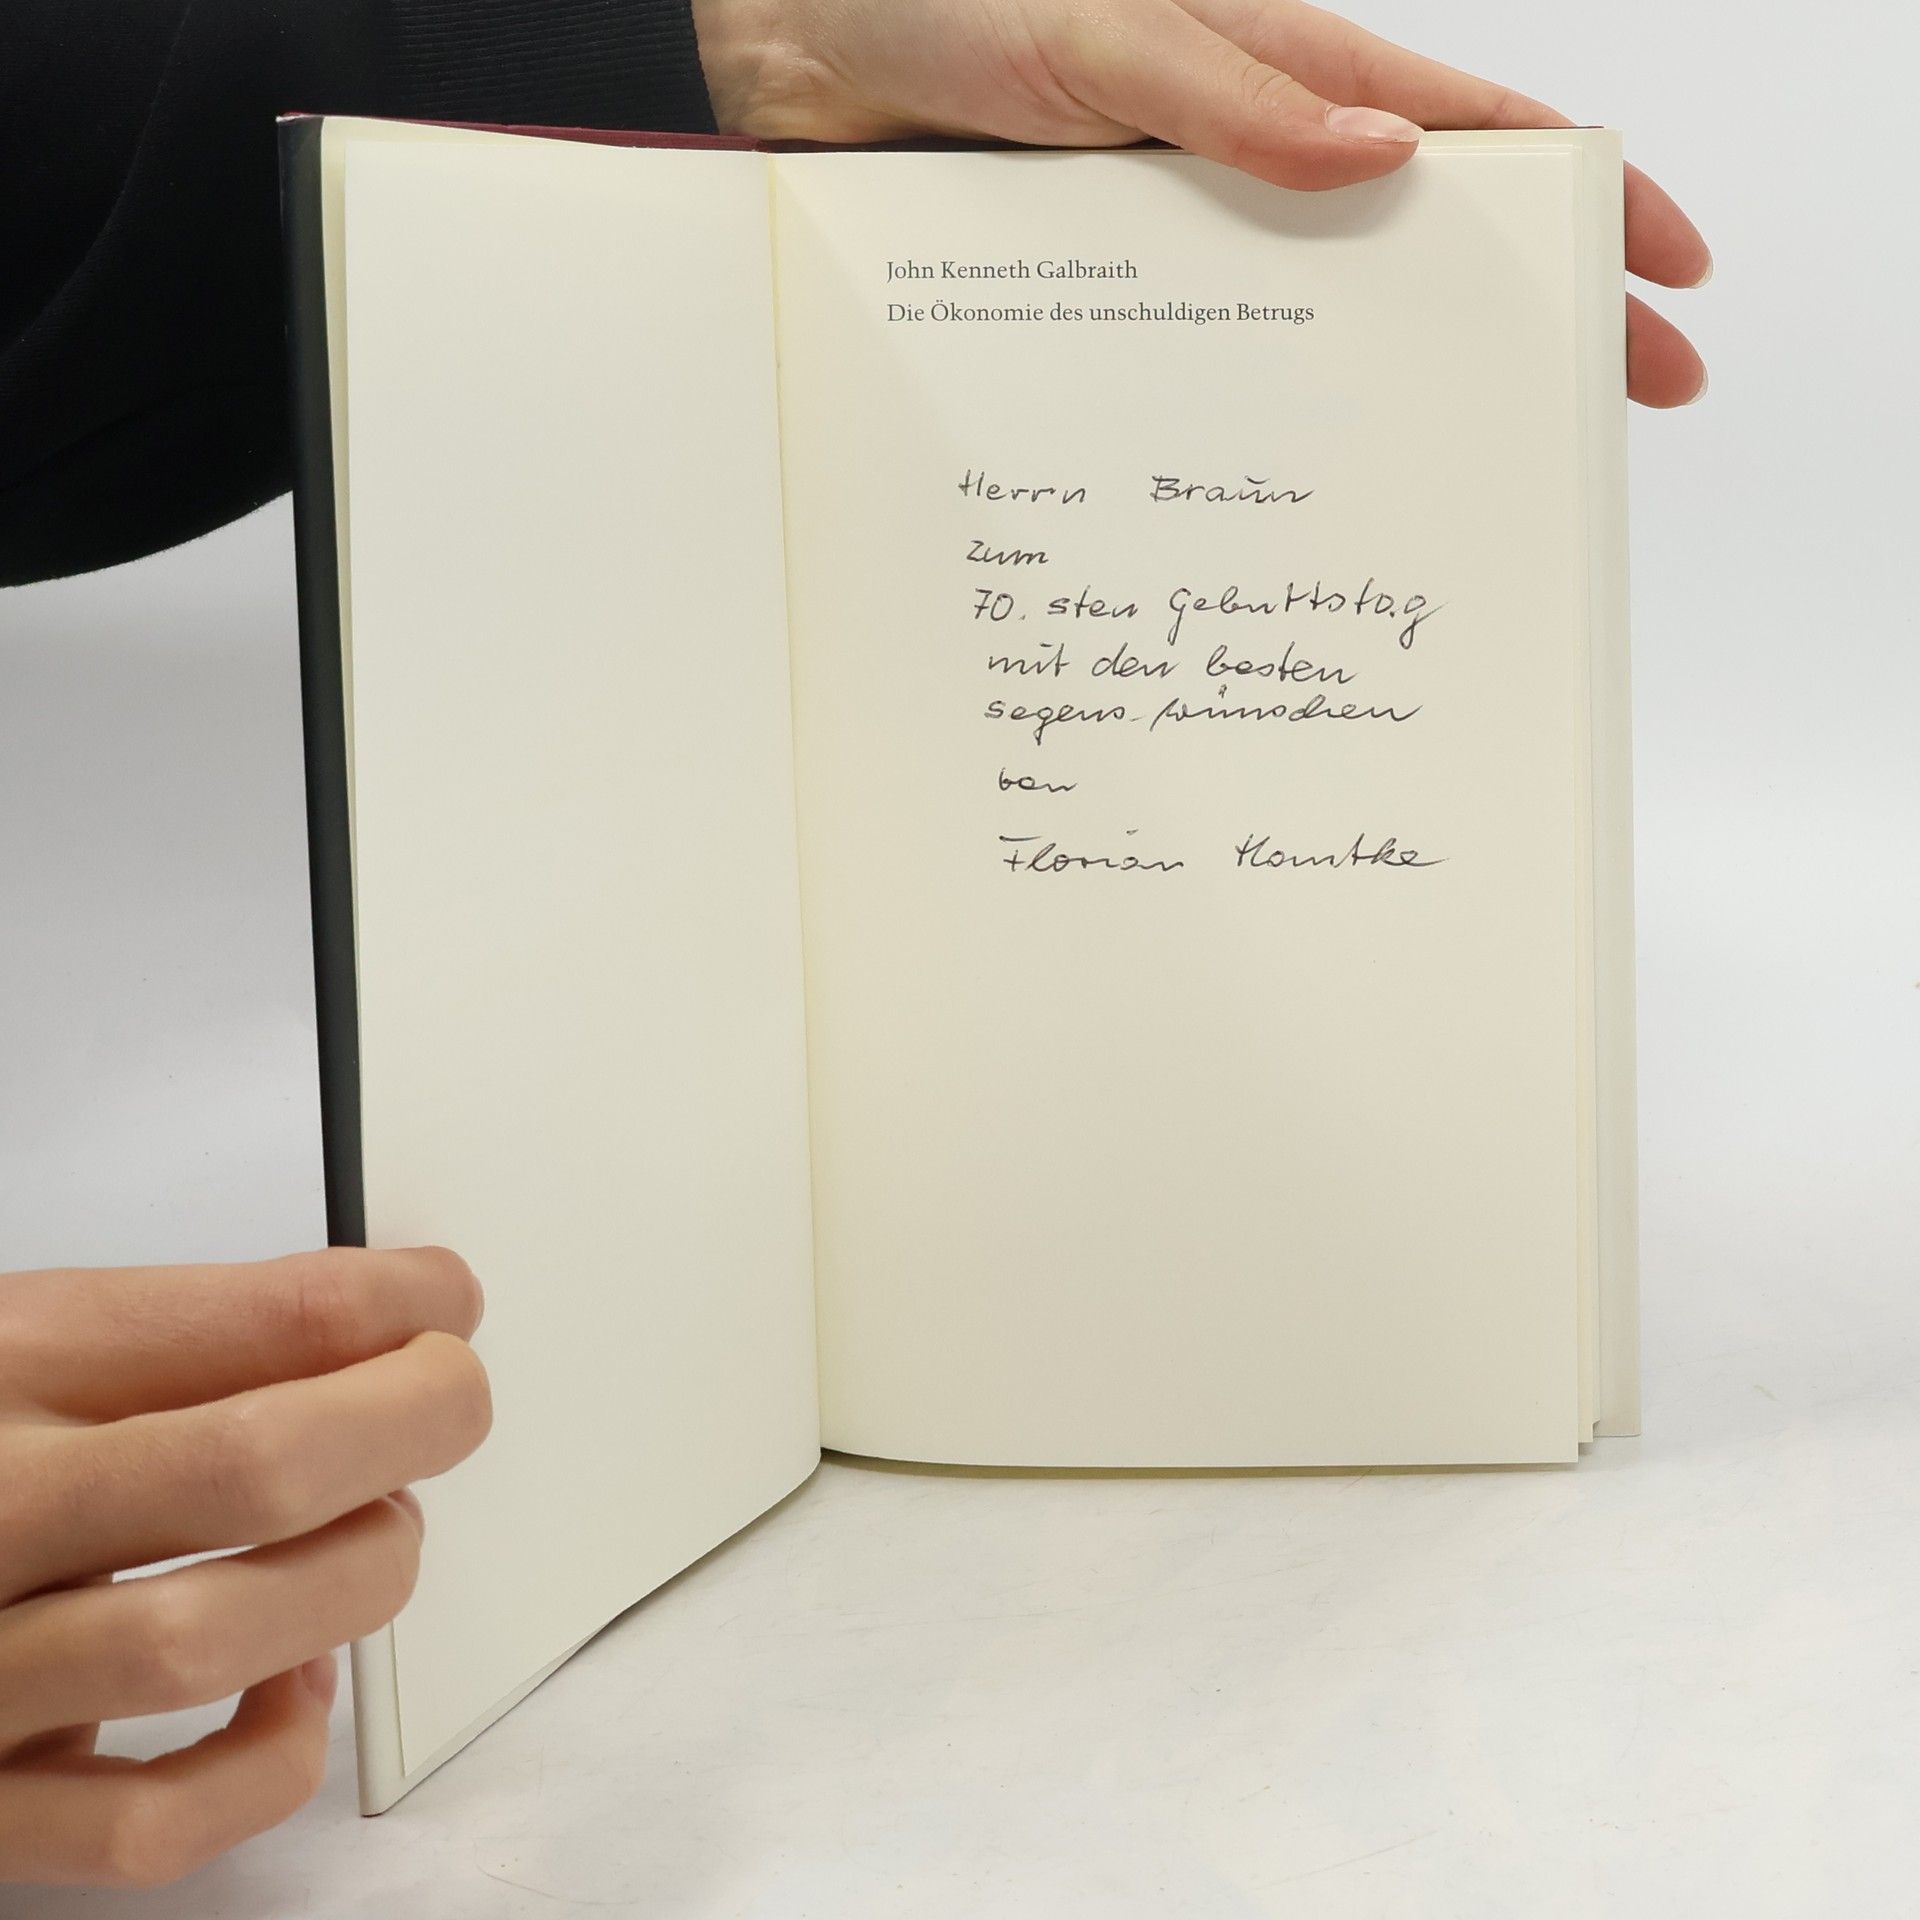 John Kenneth Galbraith
Die Ökonomie des unschuldigen Betrugs
Herrn Braun
zum
70. sten Geburtstag
mit den besten
segens-wünschen
von
Florian